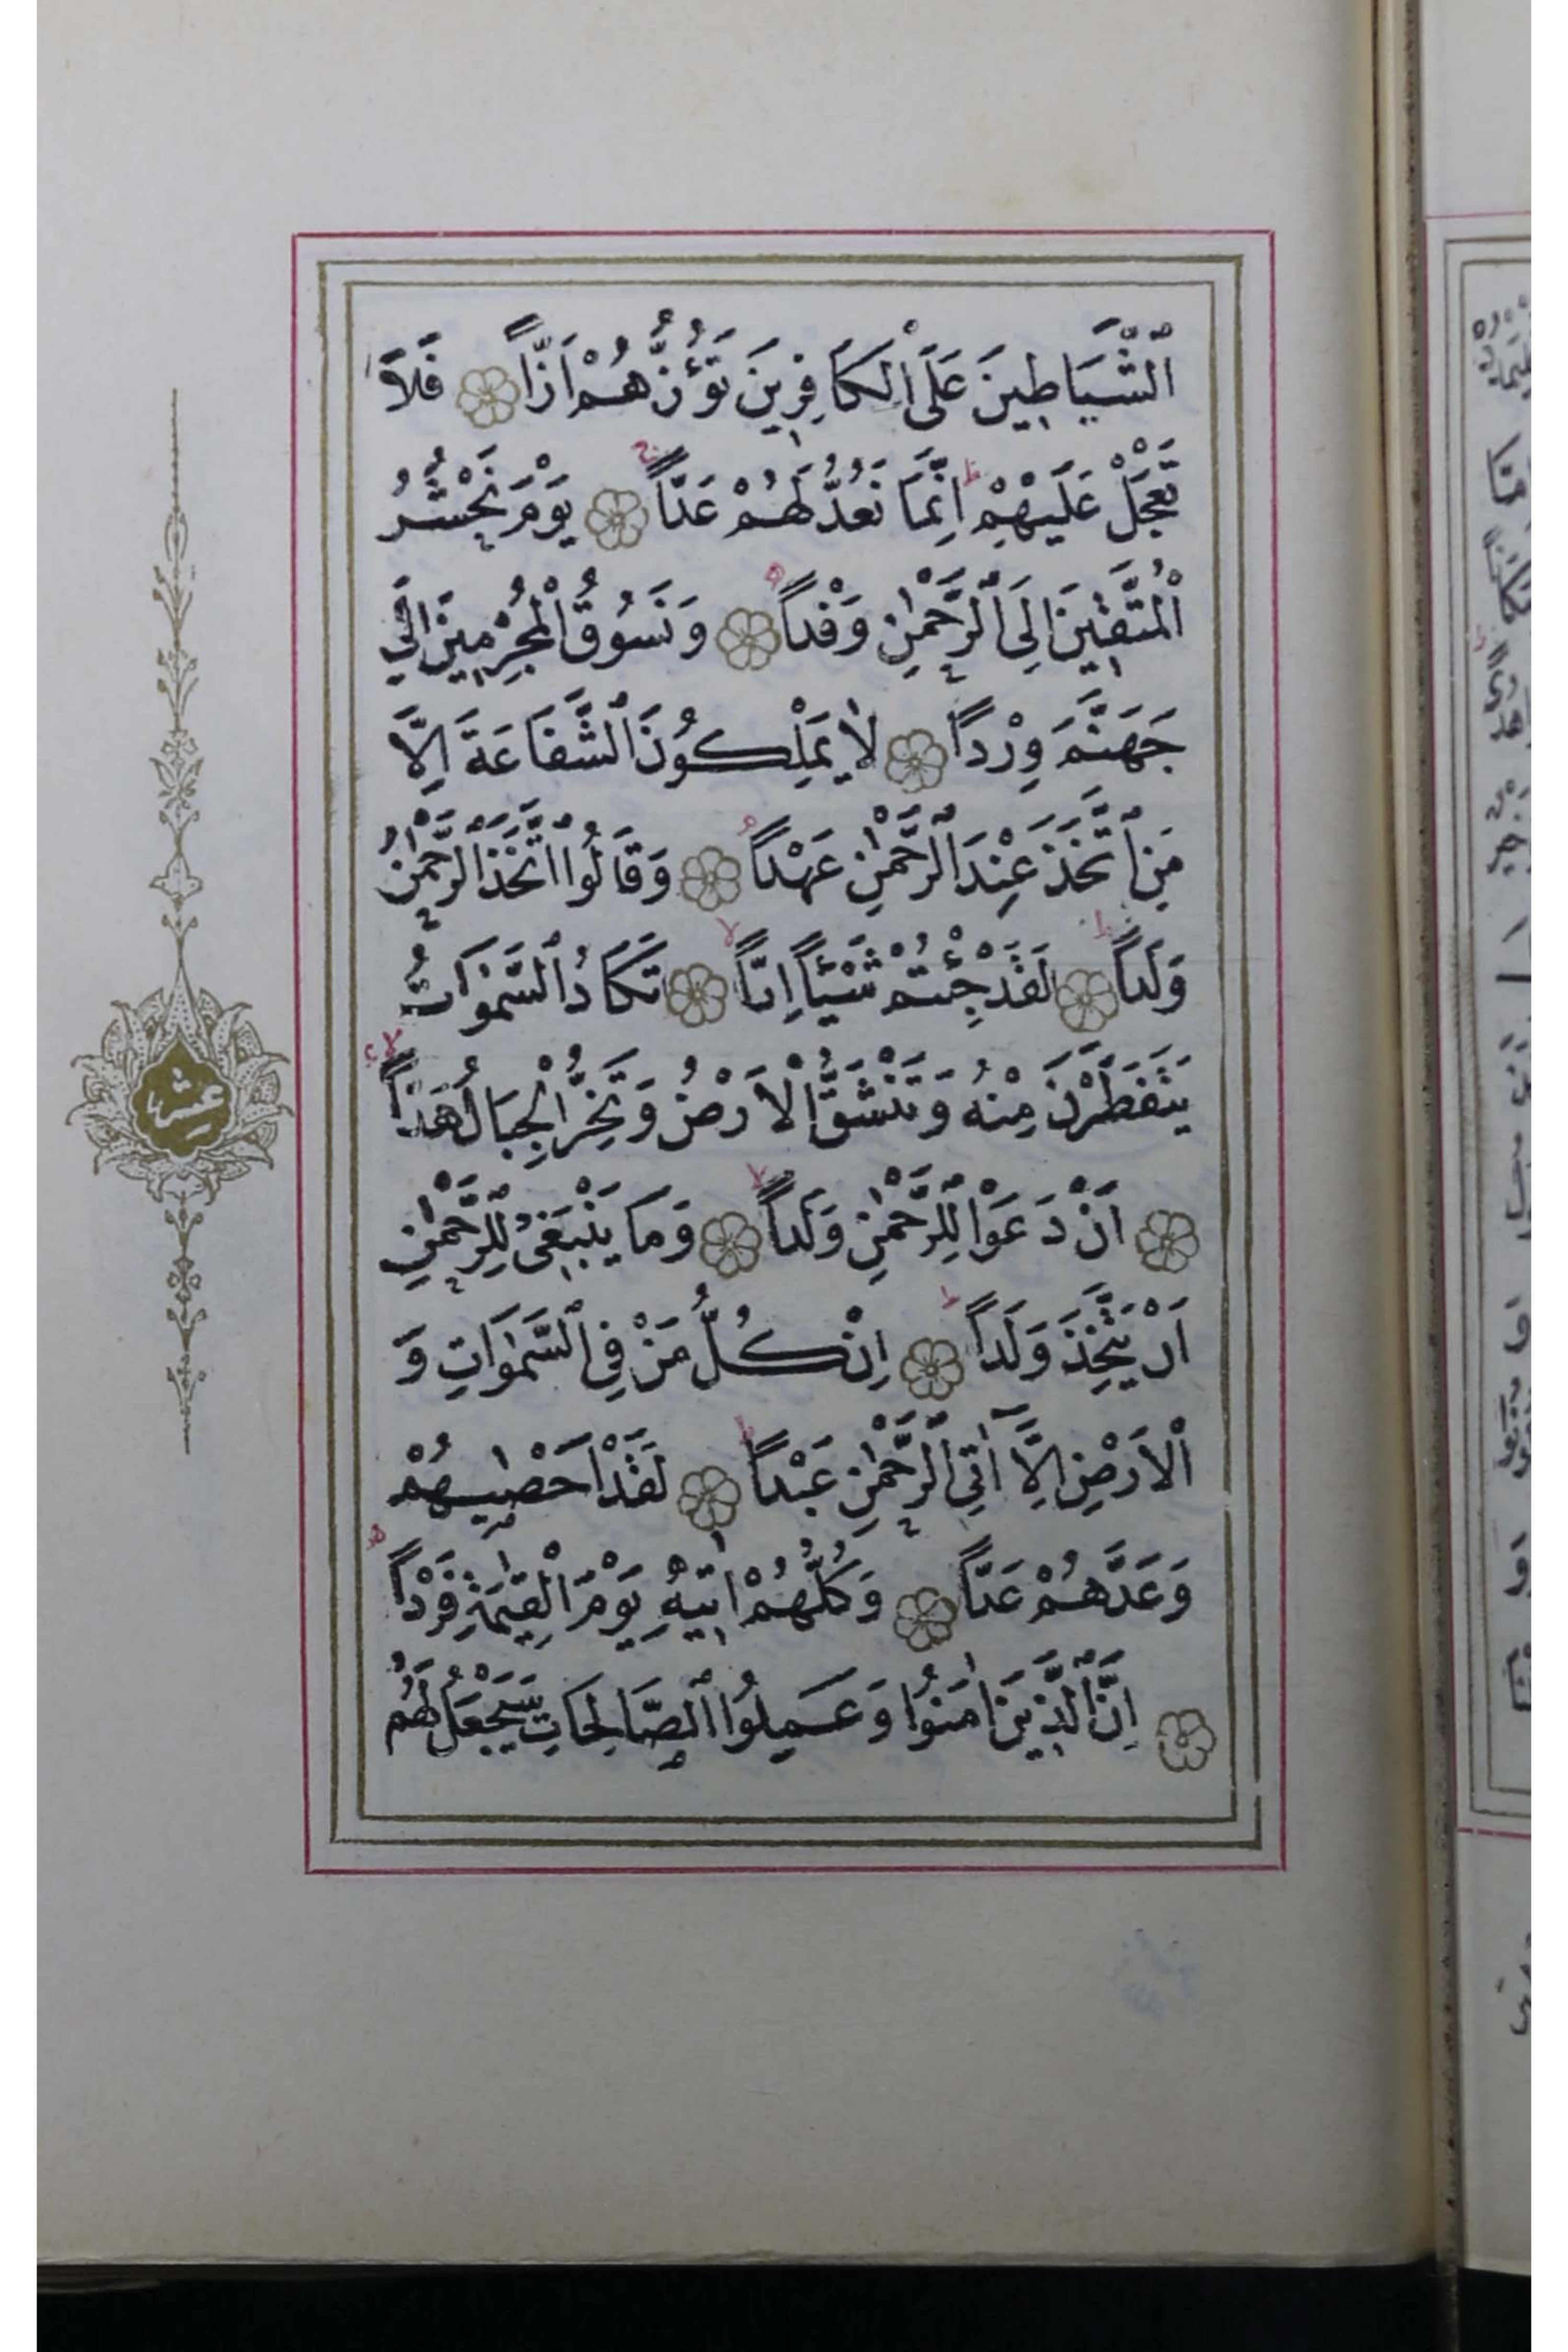 اَلشَّيَاطِينَ عَلَى الْكَافِرِينَ تَؤُزُّهُمْ اَزًّا فَلَا
تَعْجَلْ عَلَيْهِمْ اِنَّمَا نَعُدُّ لَهُمْ عَدًّا يَوْمَ نَحْشُرُ
الْمُتَّقِينَ اِلَى الرَّحْمٰنِ وَفْداً وَنَسُوقُ الْمُجْرِمِينَ اِلٰى
جَهَنَّمَ وِرْداً لَا يَمْلِكُونَ الشَّفَاعَةَ اِلَّا
مَنِ اتَّخَذَ عِنْدَ الرَّحْمٰنِ عَهْداً وَقَالُوا اتَّخَذَ الرَّحْمٰنُ
وَلَداً لَقَدْ جِئْتُمْ شَيْئاً اِدًّا تَكَادُ السَّمٰوَاتُ
يَتَفَطَّرْنَ مِنْهُ وَتَنْشَقُّ الْاَرْضُ وَتَخِرُّ الْجِبَالُ هَدًّا
اَنْ دَعَوْا لِلرَّحْمٰنِ وَلَداً وَمَا يَنْبَغِي لِلرَّحْمٰنِ
اَنْ يَتَّخِذَ وَلَداً اِنْ كُلُّ مَنْ فِي السَّمٰوَاتِ وَ
الْاَرْضِ اِلَّا اٰتِي الرَّحْمٰنِ عَبْداً لَقَدْ اَحْصٰيهُمْ
وَعَدَّهُمْ عَدًّا وَكُلُّهُمْ اٰتِيهِ يَوْمَ الْقِيٰمَةِ فَرْداً
اِنَّ الَّذِينَ اٰمَنُوا وَعَمِلُوا الصَّالِحَاتِ سَيَجْعَلُ لَهُمُ
عشر